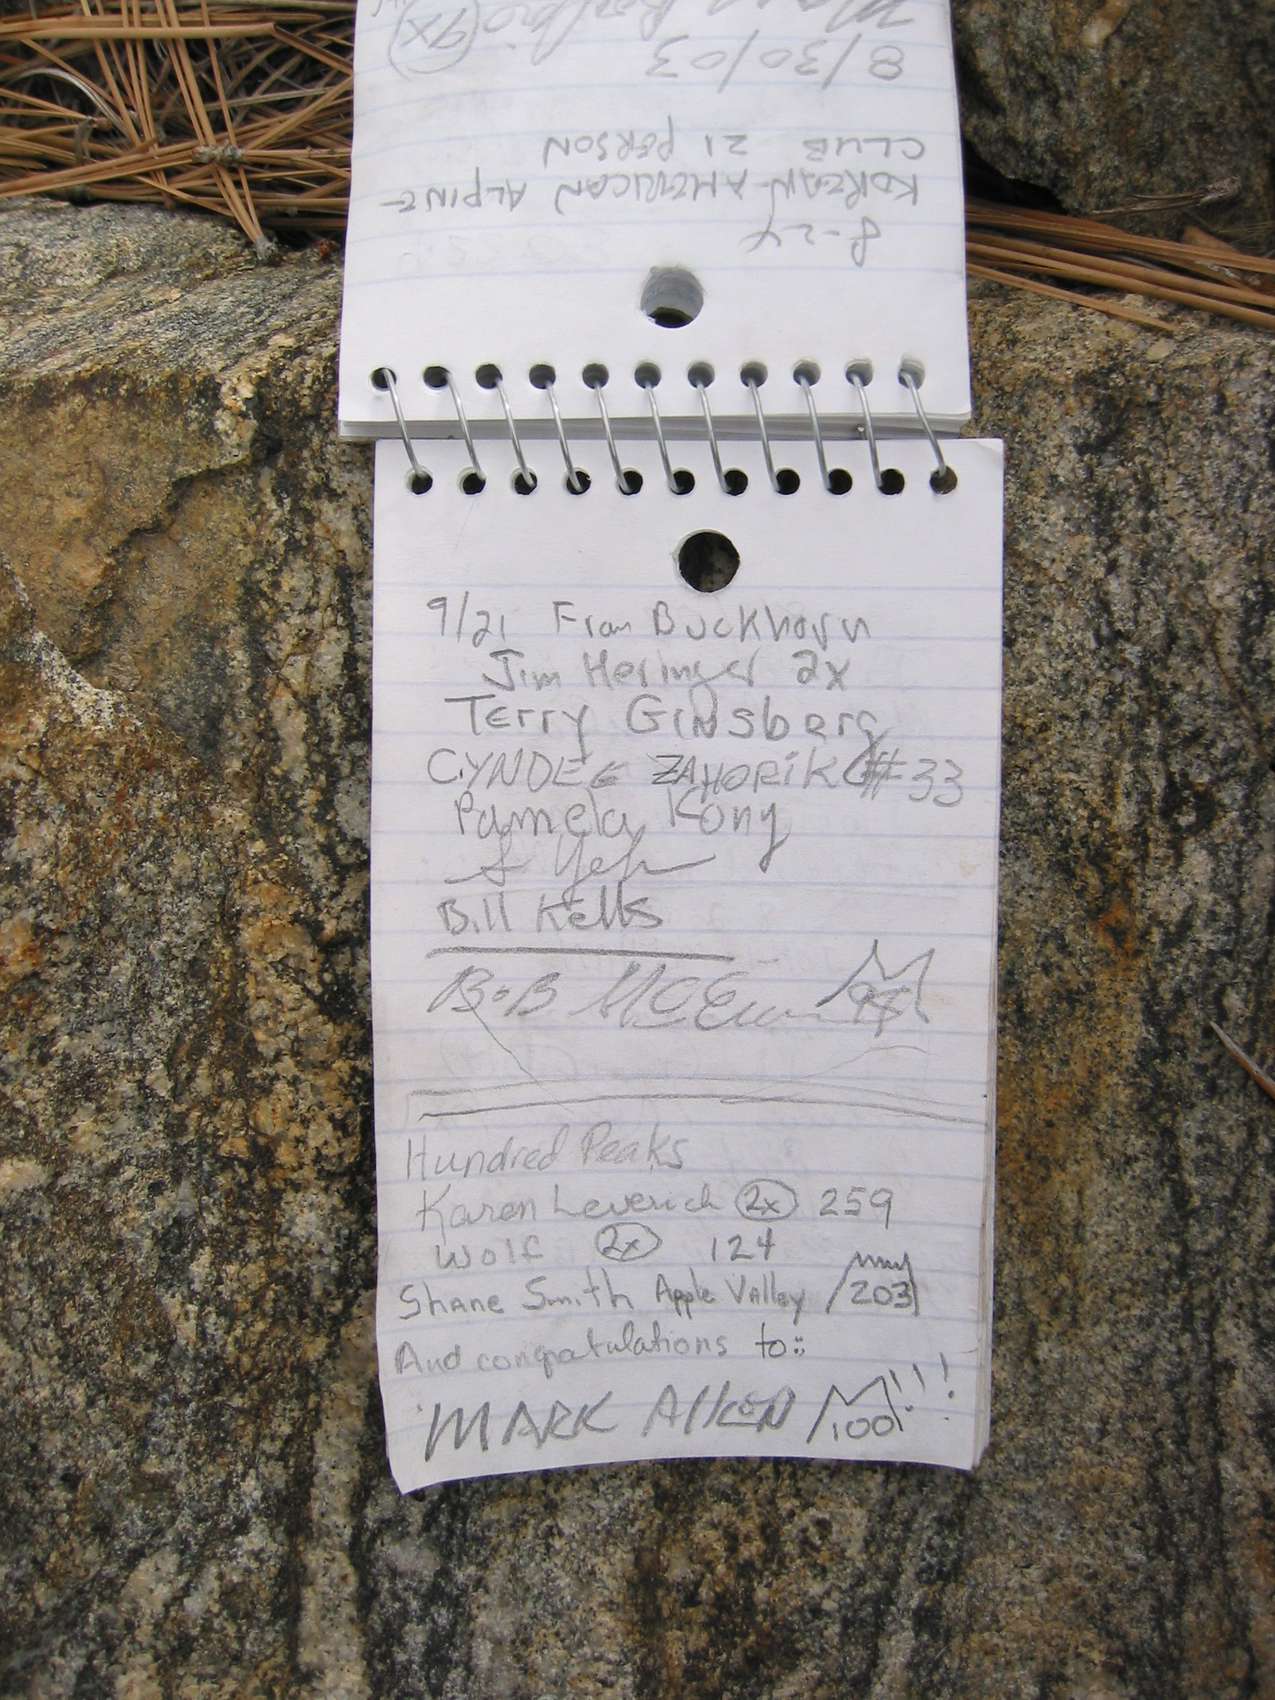 8/30/03
9x
8-24
KOREAN-AMERICAN ALPINE
CLUB 21 PERSON
9/21 Fran Buckhorn
Jim Heringer 2x
Terry Ginsberg
CYNDEE ZAHORIK #33
Pamela Kong
Bill Kells
BOB
Hundred Peaks
Karen Leverich 2x 259
Wolf 2x 124
Shane Smith Apple Valley 203
And congratulations to:
MARK Allen 100!!!